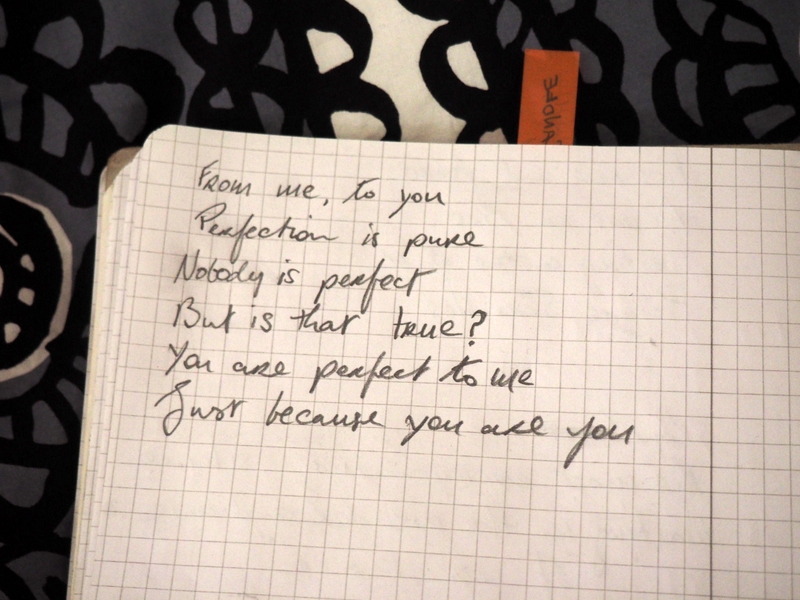 From me, to you
Perfection is pure
Nobody is perfect
But is that true?
You are perfect to me
Just because you are you